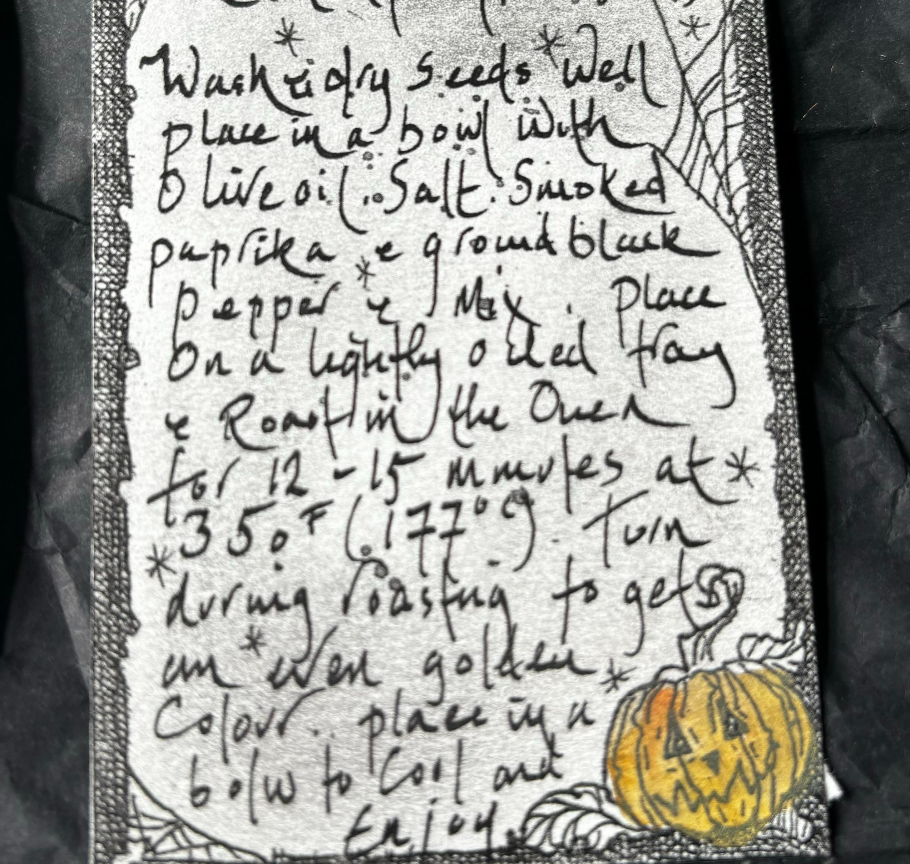 Wash & dry Seeds Well
place in a bowl with
Olive oil. Salt. Smoked
paprika & ground black
pepper & Mix. Place
On a lightly oiled tray
& Roast in the Oven
for 12 - 15 minutes at
350°F (177°C). Turn
during roasting to get
an even golden
Colour. place in a
bolw to Cool and
Enjoy.